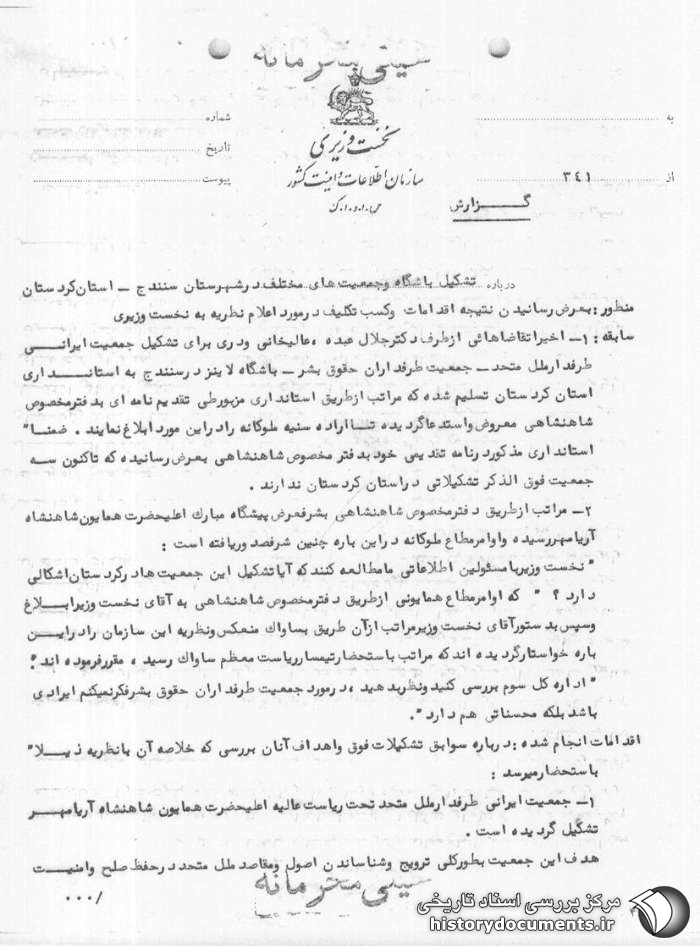 خیلی محرمانه
شماره
تاریخ
پیوست
به
از ۳۴۱
نخست وزیری
سازمان اطلاعات و امنیت کشور
س.ا.و.ا.ک
گـــزارش
درباره تشکیل باشگاه وجمعیت های مختلف درشهرستان سنندج ـ استان کردستان
منظور : بعرض رسانیدن نتیجه اقدامات وکسب تکلیف درمورد اعلام نظریه به نخست وزیری
سابقه : ۱ـ اخیرا تقاضاهائی ازطرف دکترجلال عبده ،عالیخانی ودری برای تشکیل جمعیت ایرانـــی
طرفدارملل متحد ـ جمعیت طرفداران حقوق بشر ـ باشگاه لاینز درسنندج به استانــــداری
استان کردستان تسلیم شده که مراتب ازطریق استانداری مزبورطی تقدیم نامه ای بدفترمخصوص
شاهنشاهی معروض واستدعاگردیده تـــااراده سنیه ملوکانه رادراین مورد ابلاغ نمایند . ضمنــا"
استانداری مذکوردرنامه تقدیمی خود بدفتر مخصوص شاهنشاهی بعرض رسانیده که تاکنون سه
جمعیت فوق الذکر تشکیلاتی دراستان کردستان ندارند .
۲ـ مراتب ازطریق دفترمخصوص شاهنشاهی بشرفعرض پیشگاه مبارك اعلیحضرت همایون شاهنشاه
آریامهررسیده واوامرمطاع ملوکانه دراین باره چنین شرفصدوریافته است :
" نخست وزیربامسئولین اطلاعاتی مامطالعه کنند که آیاتشکیل این جمعیت هادرکردستان اشکالی
دارد ؟ " که اوامرمطاع همایونی ازطریق دفترمخصوص شاهنشاهی به آقای نخست وزیرابــلاغ
وسپس بدستورآقای نخست وزیرمراتب ازآن طریق بساواك منعکس ونظریه این سازمان رادرایــن
باره خواستارگردیده اند که مراتب باستحضارتیمسارریاست معظم ساواك رسید ، مقررفرموده اند :
" اداره کل سوم بررسی کنید ونظربدهید ،درمورد جمعیت طرفداران حقوق بشرفکرنمیکنم ایرادی
باشد بلکه محسناتی هم دارد ".
اقدامات انجام شده : درباره سوابق تشکیلات فوق واهداف آنان بررسی که خلاصه آن بانظریه ذیــلا"
باستحضارمیرسد :
۱ـ جمعیت ایرانی طرفدارملل متحد تحت ریاست عالیه اعلیحضرت همایون شاهنشاه آریامهـر
تشکیل گردیده است .
هدف این جمعیت بطورکلی ترویج وشناساندن اصول ومقاصد ملل متحد درحفظ صلح وامنیـت
۰۰۰/
خیلی محرمانه
مرکز بررسی اسناد تاریخی
historydocuments.ir